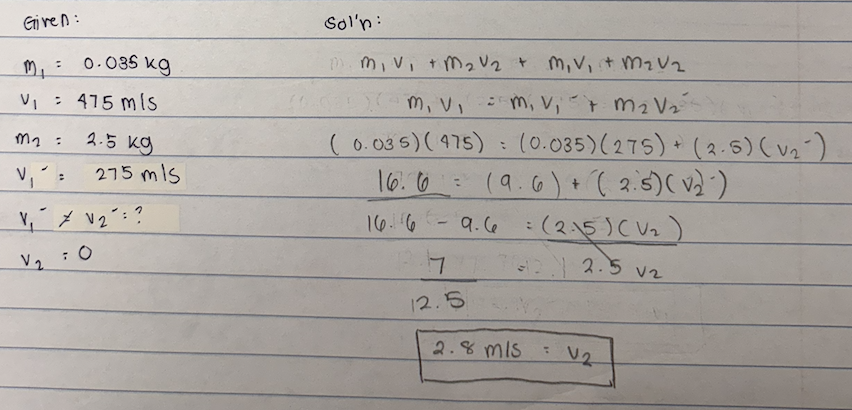 Given:
m₁ = 0.035 kg
v₁ = 475 m/s
m₂ = 2.5 kg
v₁′ = 275 m/s
v₁′ ≠ v₂′ = ?
v₂ = 0
Sol'n:
m₁v₁ + m₂v₂ + m₁v₁ + m₂v₂
m₁v₁ = m₁v₁′ + m₂v₂′
(0.035)(475) = (0.035)(275) + (2.5)(v₂′)
16.6 = (9.6) + (2.5)(v₂′)
16.6 - 9.6 = (2.5)(v₂)
7 = 2.5 v₂
2.5
2.8 m/s = v₂